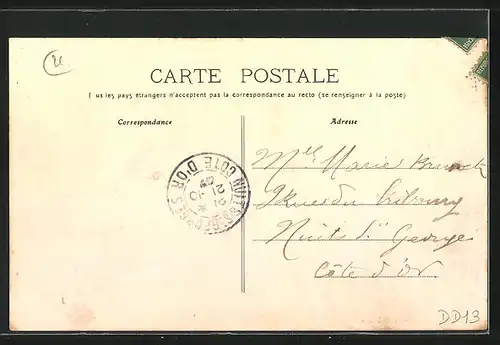 CARTE POSTALE
Tous les pays étrangers n'acceptent pas la correspondance au recto (se renseigner à la poste)
Correspondance
Adresse
Mlle Marie
Rue du
Nuit St Georges
Côte d'Or
NUITS-ST-GEORGES COTE D'OR
DD13